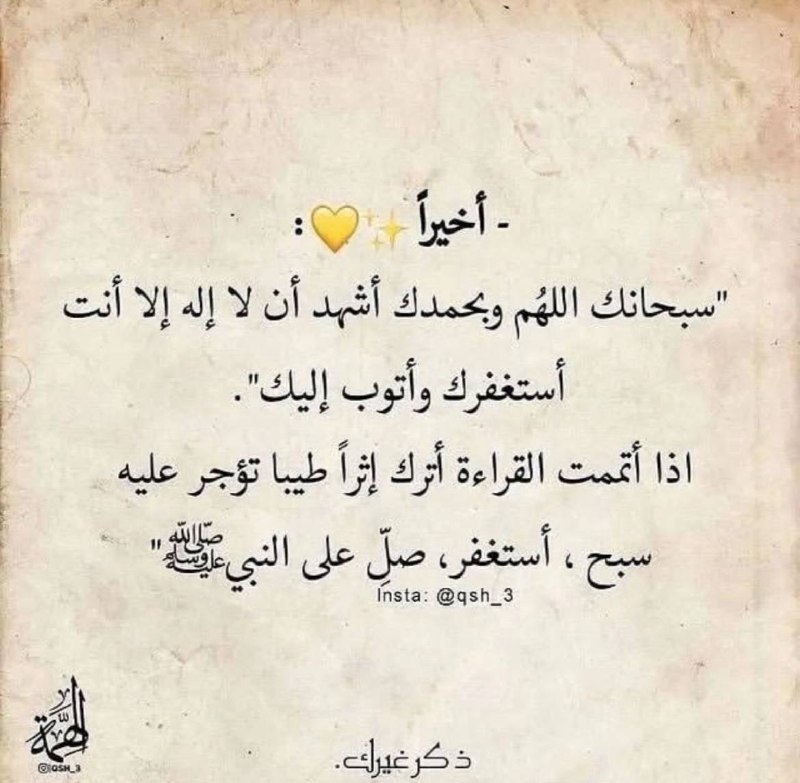 - أخيراً ✨💛 :
"سبحانك اللهُم وبحمدك أشهد أن لا إله إلا أنت
أستغفرك وأتوب إليك".
اذا أتممت القراءة أترك إثراً طيبا تؤجر عليه
سبح ، أستغفر، صلِّ على النبي ﷺ"
Insta: @qsh_3
الهمة
@QSH_3
ذكر غيرك.